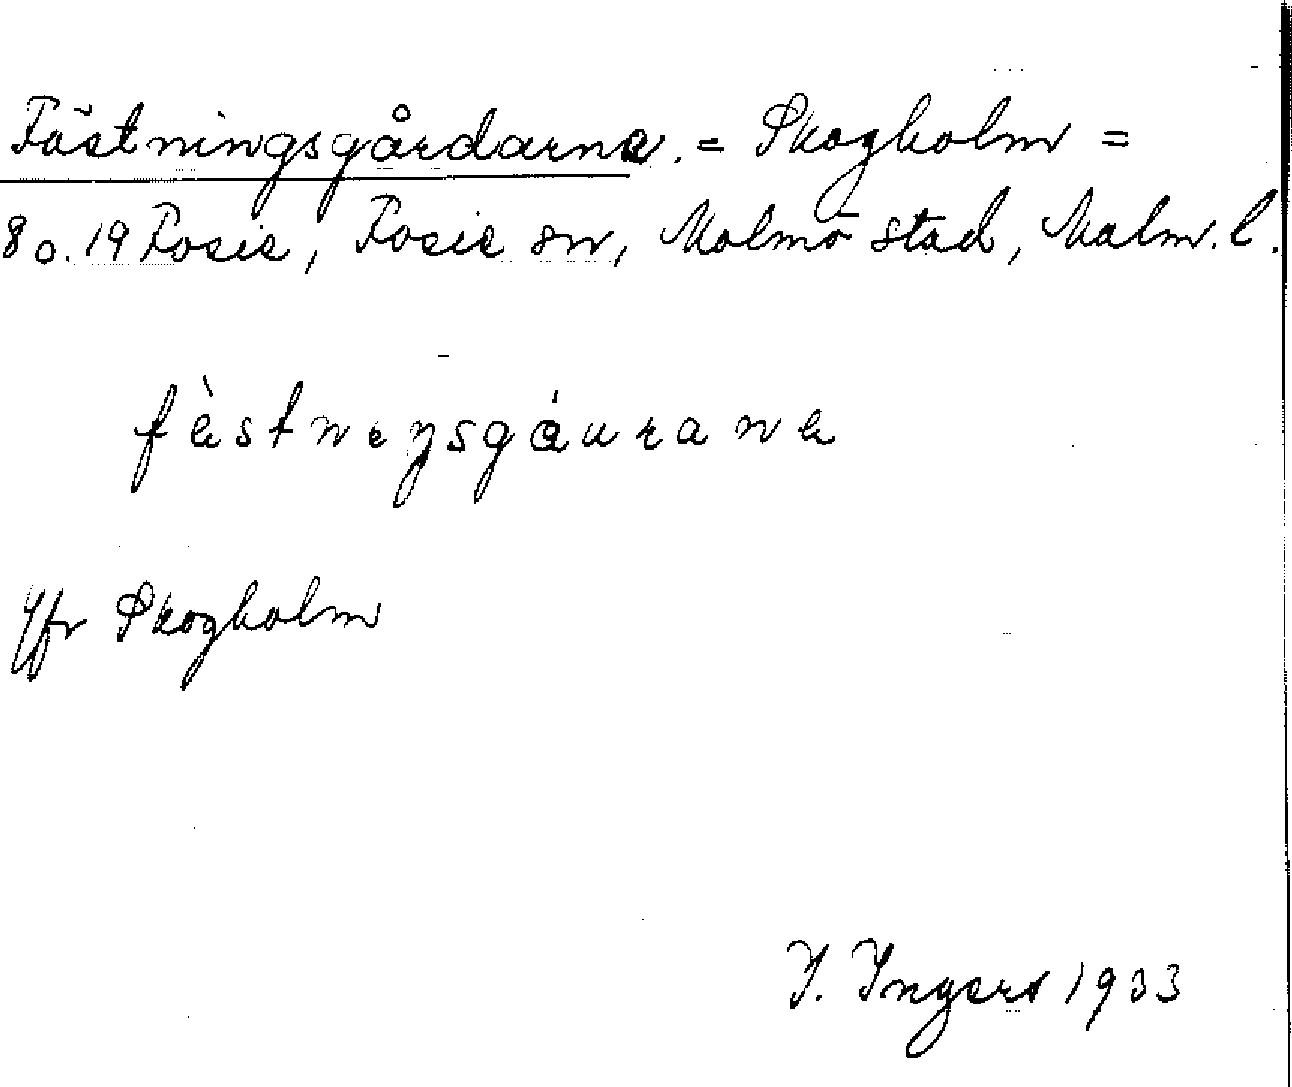 Fästningsgårdarna. = Skogholm =
8 o. 19 Fosie, Fosie sn, Malmö stad, Malm. l.
fèstneŋsgáurana
Jfr Skogholm
I. Ingers 1933